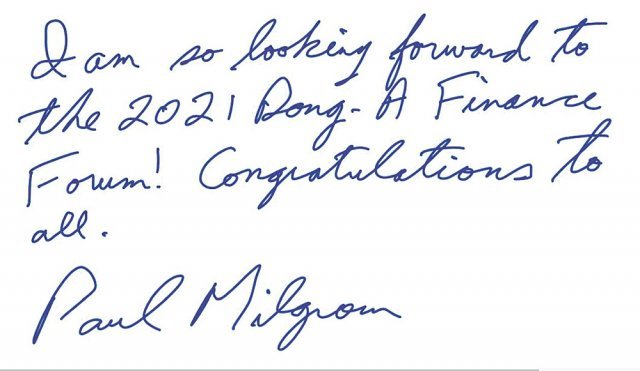 I am so looking forward to
the 2021 Dong-A Finance
Forum! Congratulations to
all.
Paul Milgrom